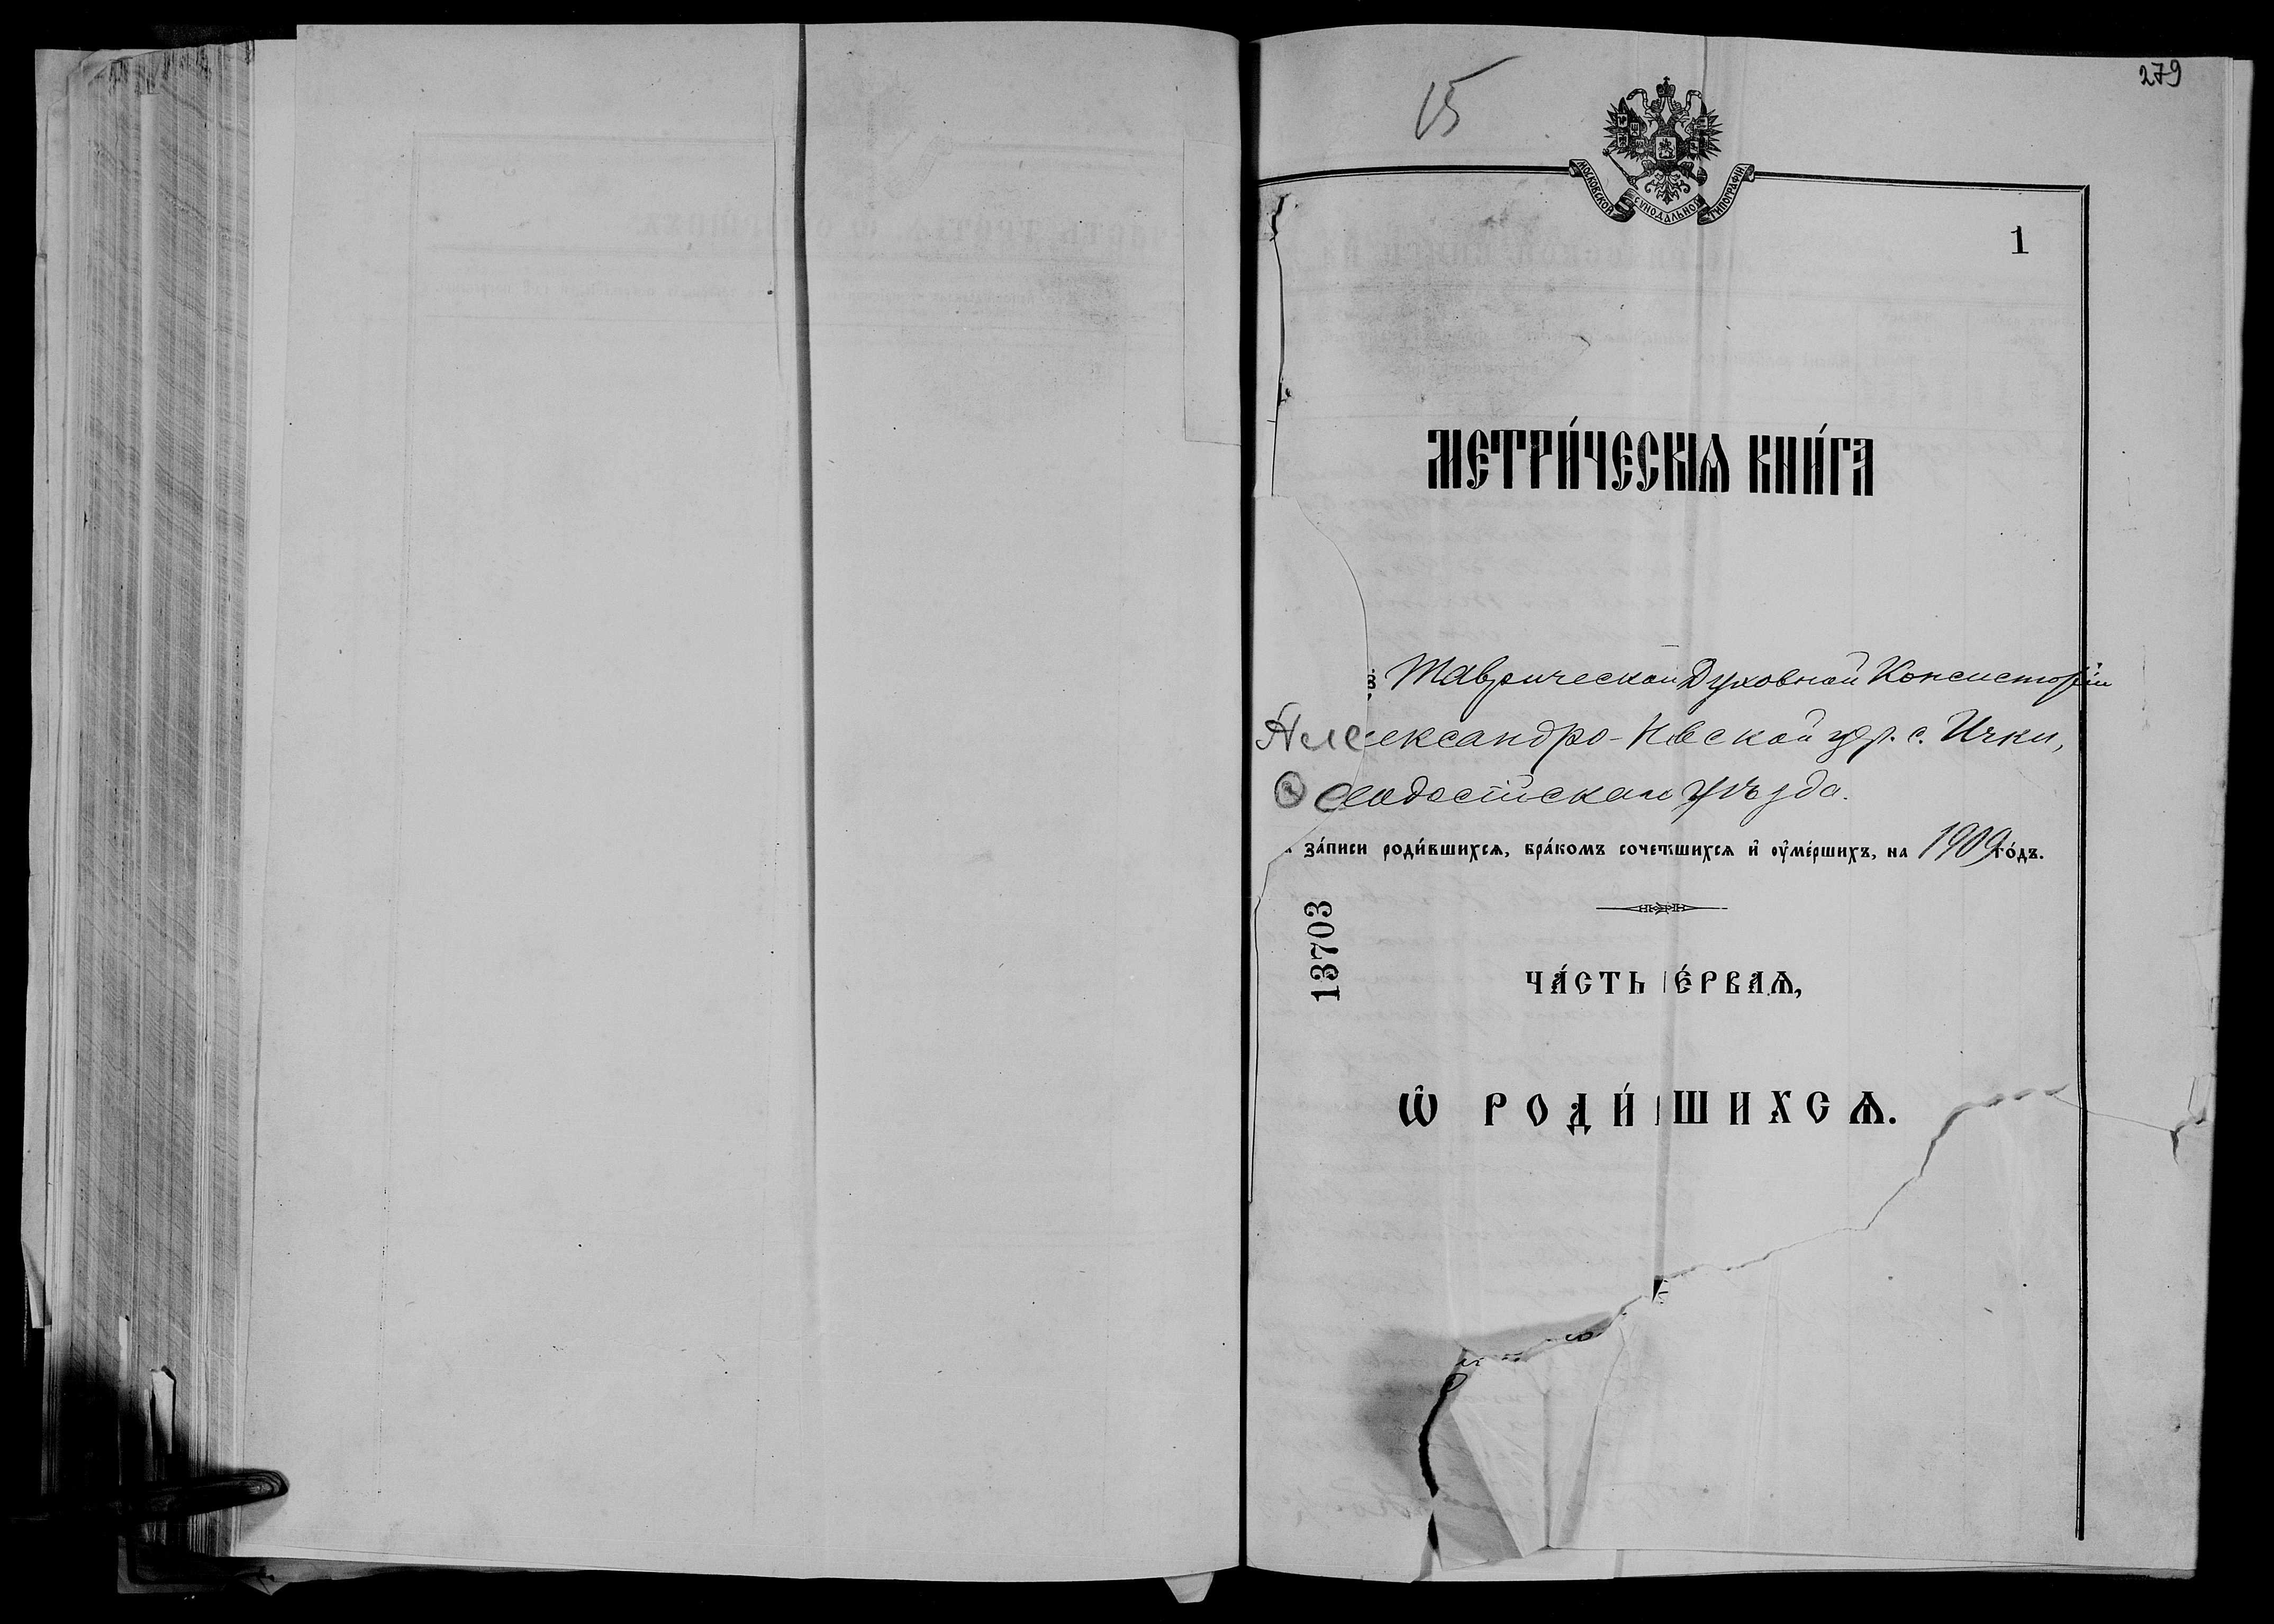 279
15
МОСКОВСКОЙ СѴНОДАЛЬНОЙ ТИПОГРАФІИ
1
МЕТРИ́ЧЕСКІѦ КНИ́ГА
Таврической Духовной Консисторіи
Александро-Невской цер. с. Ички,
Ѳеодосійскаго уѣзда.
за́писи роди́вшихсѧ, бра́комъ сочета́вшихсѧ и҆ оу҆ме́ршихъ, на 1909 го́дъ.
13703
ЧА́СТЬ Е́РВАѦ,
Ѡ҆ РОДИ́ ШИХСѦ.